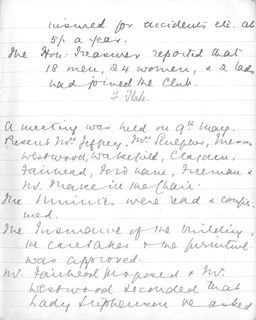 insured for accidents etc. at
5/- a year.
The Hon. Treasurer reported that
18 men, 24 women, & 2 lads
had joined the Club.
A meeting was held on 9th May.
Present Mrs Jeffrey, Mrs
Westwood, Wakefield, Clayden,
Fairhead, Fordham, Freeman &
Mr. in the Chair.
The minutes were read & confir-
med.
The Insurance of the building,
the caretaker & the furniture
was approved.
Mr. Fairhead proposed & Mr.
Westwood seconded that
Lady Stephenson be asked